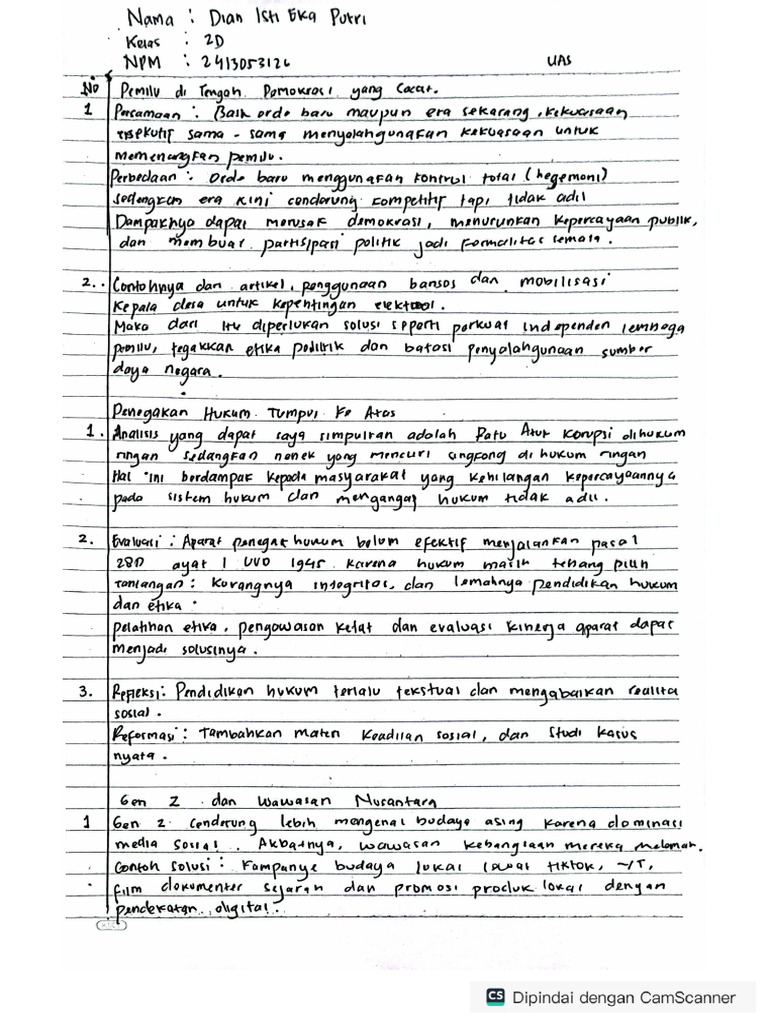 Nama : Dian Isti Eka Putri
Kelas : 2D
NPM : 2413053126 UAS
No Pemilu di Tengah Demokrasi yang Cacat.
1 Persamaan : Baik orde baru maupun era sekarang, kekuasaan
eksekutif sama - sama menyalahgunakan kekuasaan untuk
memenangkan pemilu.
Perbedaan : Orde baru menggunakan kontrol total (hegemoni)
sedangkan era kini cenderung competitif tapi tidak adil
Dampaknya dapat merusak demokrasi, menurunkan kepercayaan publik,
dan membuat partisipasi politik jadi formalitas semata.
2. Contohnya dari artikel, penggunaan bansos dan mobilisasi
kepala desa untuk kepentingan elektoral.
Maka dari itu diperlukan solusi seperti perkuat independen lembaga
pemilu, tegakkan etika politik dan batasi penyalahgunaan sumber
daya negara.
Penegakan Hukum Tumpul Ke Atas
1. Analisis yang dapat saya simpulkan adalah Ratu Atut korupsi dihukum
ringan sedangkan nenek yang mencuri singkong di hukum ringan
Hal ini berdampak kepada masyarakat yang kehilangan kepercayaannya
pada sistem hukum dan menganggap hukum tidak adil.
2. Evaluasi : Aparat penegak hukum belum efektif menjalankan pasal
28D ayat 1 UUD 1945 karena hukum masih tebang pilih
Tantangan : Kurangnya integritas, dan lemahnya pendidikan hukum
dan etika.
pelatihan etika, pengawasan ketat dan evaluasi kinerja aparat dapat
menjadi solusinya.
3. Refleksi : Pendidikan hukum terlalu tekstual dan mengabaikan realita
sosial.
Reformasi : Tambahkan materi keadilan sosial, dan studi kasus
nyata.
Gen Z dan Wawasan Nusantara
1 Gen Z cenderung lebih mengenal budaya asing karena dominasi
media sosial. Akibatnya, wawasan kebangsaan mereka melemah.
Contoh solusi : Kampanye budaya lokal lewat tiktok, YT,
film dokumenter sejarah dan promosi produk lokal dengan
pendekatan digital.
CS Dipindai dengan CamScanner